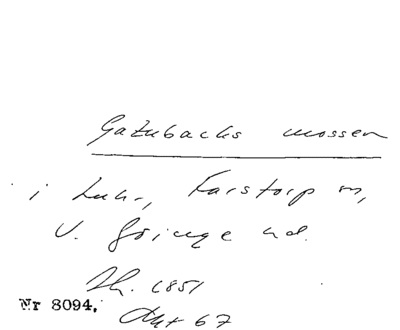 Gatubacks mossen
i Luhr, Farstorp sn,
V. Göinge hd.
Lh. 1851
Nr 8094.
Akt 67